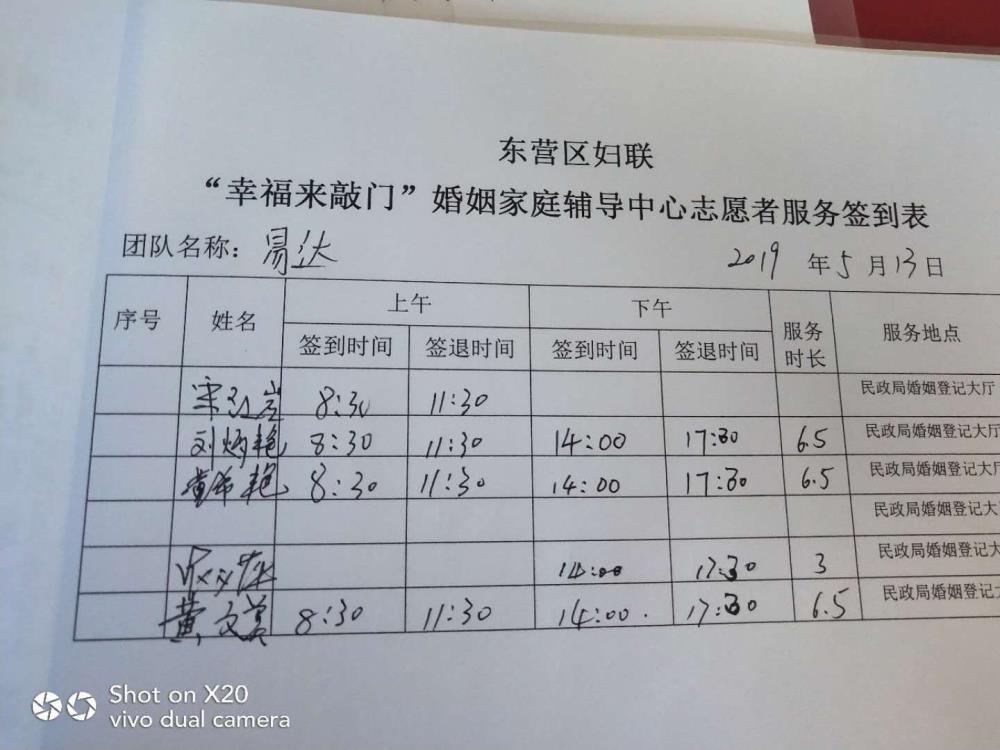 东营区妇联
“幸福来敲门”婚姻家庭辅导中心志愿者服务签到表
团队名称: 易达 2019 年 5 月 13 日
序号 姓名 上午 下午 服务时长 服务地点
签到时间 签退时间 签到时间 签退时间
8:30 11:30 民政局婚姻登记大厅
刘炳艳 8:30 11:30 14:00 17:30 6.5 民政局婚姻登记大厅
黄希艳 8:30 11:30 14:00 17:30 6.5 民政局婚姻登记大厅
民政局婚姻登记大
14:00 17:30 3 民政局婚姻登记大
黄文英 8:30 11:30 14:00. 17:30 6.5 民政局婚姻登记大
Shot on X20
vivo dual camera